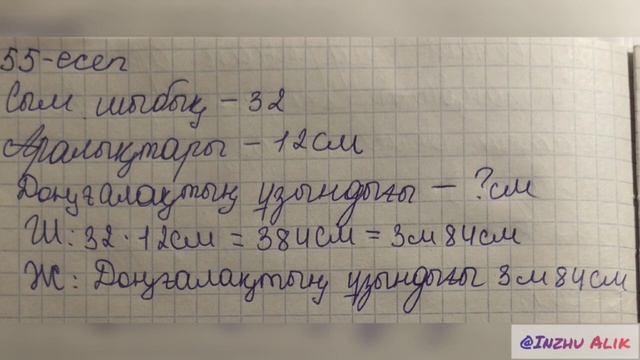 55-есеп
Сым шыбық - 32
Аралықтары - 12см
Доңғалақтың ұзындығы - ? см
Ш: 32 · 12см = 384см = 3м 84см
Ж: Доңғалақтың ұзындығы 3м 84см
@Inzhu Alik